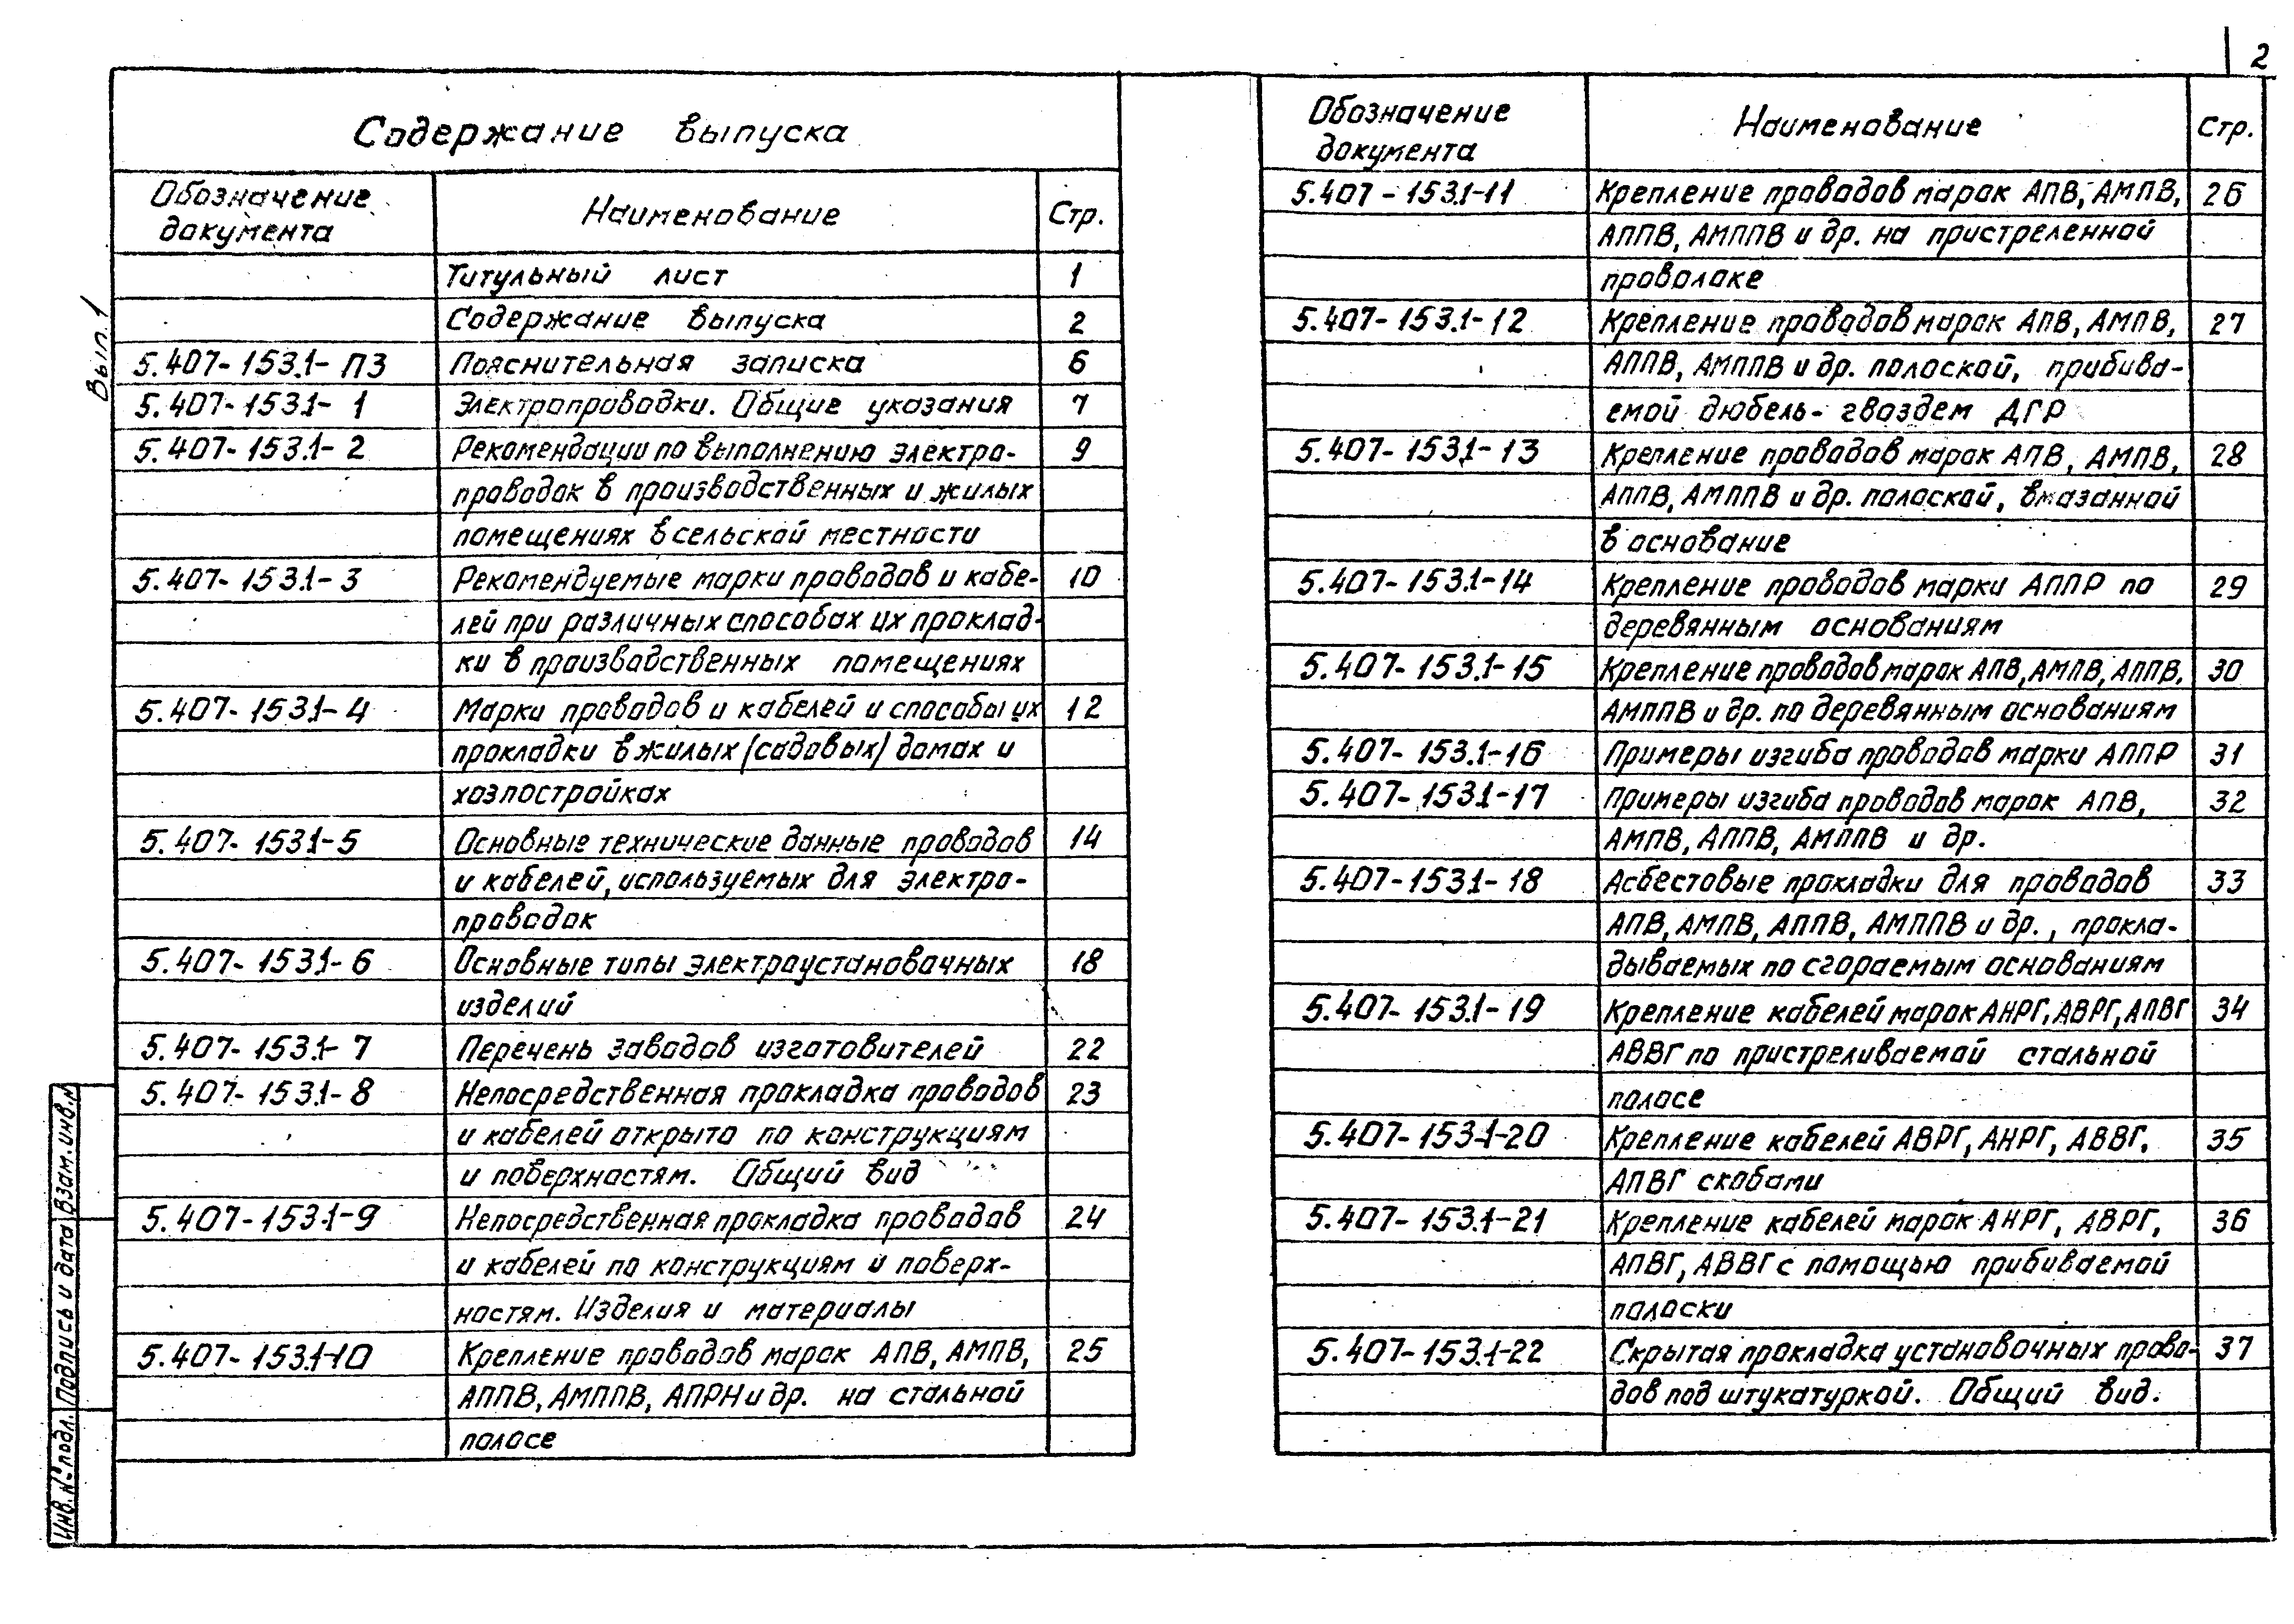 2
Содержание выпуска
Обозначение документа Наименование Стр.
Титульный лист 1
Содержание выпуска 2
5.407-153.1-ПЗ Пояснительная записка 6
5.407-153.1-1 Электропроводки. Общие указания 7
5.407-153.1-2 Рекомендации по выполнению электро- 9
проводок в производственных и жилых
помещениях в сельской местности
5.407-153.1-3 Рекомендуемые марки проводов и кабе- 10
лей при различных способах их проклад-
ки в производственных помещениях
5.407-153.1-4 Марки проводов и кабелей и способы их 12
прокладки в жилых (садовых) домах и
хозпостройках
5.407-153.1-5 Основные технические данные проводов 14
и кабелей, используемых для электро-
проводок
5.407-153.1-6 Основные типы электроустановочных 18
изделий
5.407-153.1-7 Перечень заводов изготовителей 22
5.407-153.1-8 Непосредственная прокладка проводов 23
и кабелей открыто по конструкциям
и поверхностям. Общий вид
5.407-153.1-9 Непосредственная прокладка проводов 24
и кабелей по конструкциям и поверх-
ностям. Изделия и материалы
5.407-153.1-10 Крепление проводов марок АПВ, АМПВ, 25
АППВ, АМППВ, АПРН и др. на стальной
полосе
Обозначение документа Наименование Стр.
5.407-153.1-11 Крепление проводов марок АПВ, АМПВ, 26
АППВ, АМППВ и др. на пристреленной
проволоке
5.407-153.1-12 Крепление проводов марок АПВ, АМПВ, 27
АППВ, АМППВ и др. полоской, прибива-
емой дюбель-гвоздем ДГР
5.407-153.1-13 Крепление проводов марок АПВ, АМПВ, 28
АППВ, АМППВ и др. полоской, вмазанной
в основание
5.407-153.1-14 Крепление проводов марки АППР по 29
деревянным основаниям
5.407-153.1-15 Крепление проводов марок АПВ, АМПВ, АППВ, 30
АМППВ и др. по деревянным основаниям
5.407-153.1-16 Примеры изгиба проводов марки АППР 31
5.407-153.1-17 Примеры изгиба проводов марок АПВ, 32
АМПВ, АППВ, АМППВ и др.
5.407-153.1-18 Асбестовые прокладки для проводов 33
АПВ, АМПВ, АППВ, АМППВ и др., прокла-
дываемых по сгораемым основаниям
5.407-153.1-19 Крепление кабелей марок АНРГ, АВРГ, АПВГ 34
АВВГ по пристреливаемой стальной
полосе
5.407-153.1-20 Крепление кабелей АВРГ, АНРГ, АВВГ, 35
АПВГ скобами
5.407-153.1-21 Крепление кабелей марок АНРГ, АВРГ, 36
АПВГ, АВВГ с помощью прибиваемой
полоски
5.407-153.1-22 Скрытая прокладка установочных прово- 37
дов под штукатуркой. Общий вид.
Вып. 1
Взам. инв. №
Подпись и дата
Инв. № подл.